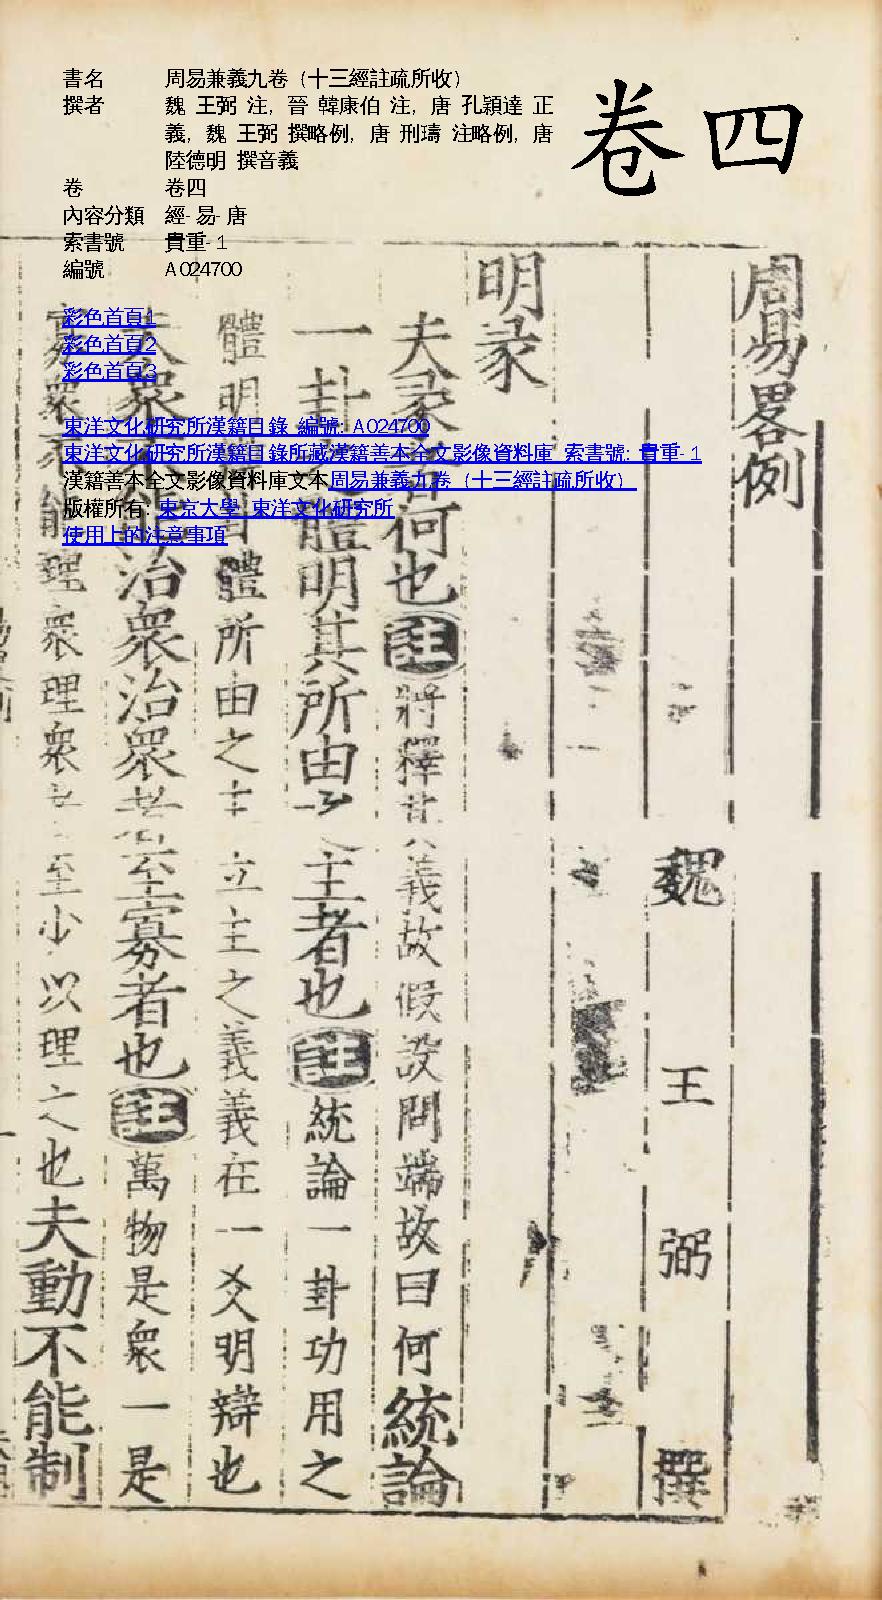 卷四
書名 周易兼義九卷（十三經註疏所收）
撰者 魏 王弼 注, 晉 韓康伯 注, 唐 孔穎達 正
義, 魏 王弼 撰略例, 唐 刑璹 注略例, 唐
陸德明 撰音義
卷 卷四
內容分類 經-易-唐
索書號 貴重-1
編號 A024700
彩色首頁1
彩色首頁2
彩色首頁3
東洋文化研究所漢籍目錄 編號: A024700
東洋文化研究所漢籍目錄所藏漢籍善本全文影像資料庫 索書號: 貴重-1
漢籍善本全文影像資料庫文本周易兼義九卷（十三經註疏所收）
版權所有: 東京大學 東洋文化研究所
使用上的注意事項
周易畧例
魏王弼撰
明彖
夫彖者何也註將釋其義故假設問端故曰何統論
一卦之體明其所由之主者也註統論一卦功用之
體明體所由之主立主之義義在一爻明辯也
夫衆不能治衆治衆者至寡者也註萬物是衆一是
寡衆不能理衆理衆者至少以理之也夫動不能制